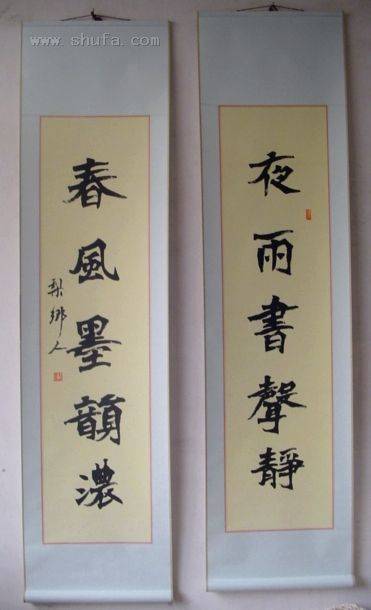 www.shufa.com
夜雨書聲靜
春風墨韻濃
梨鄉人